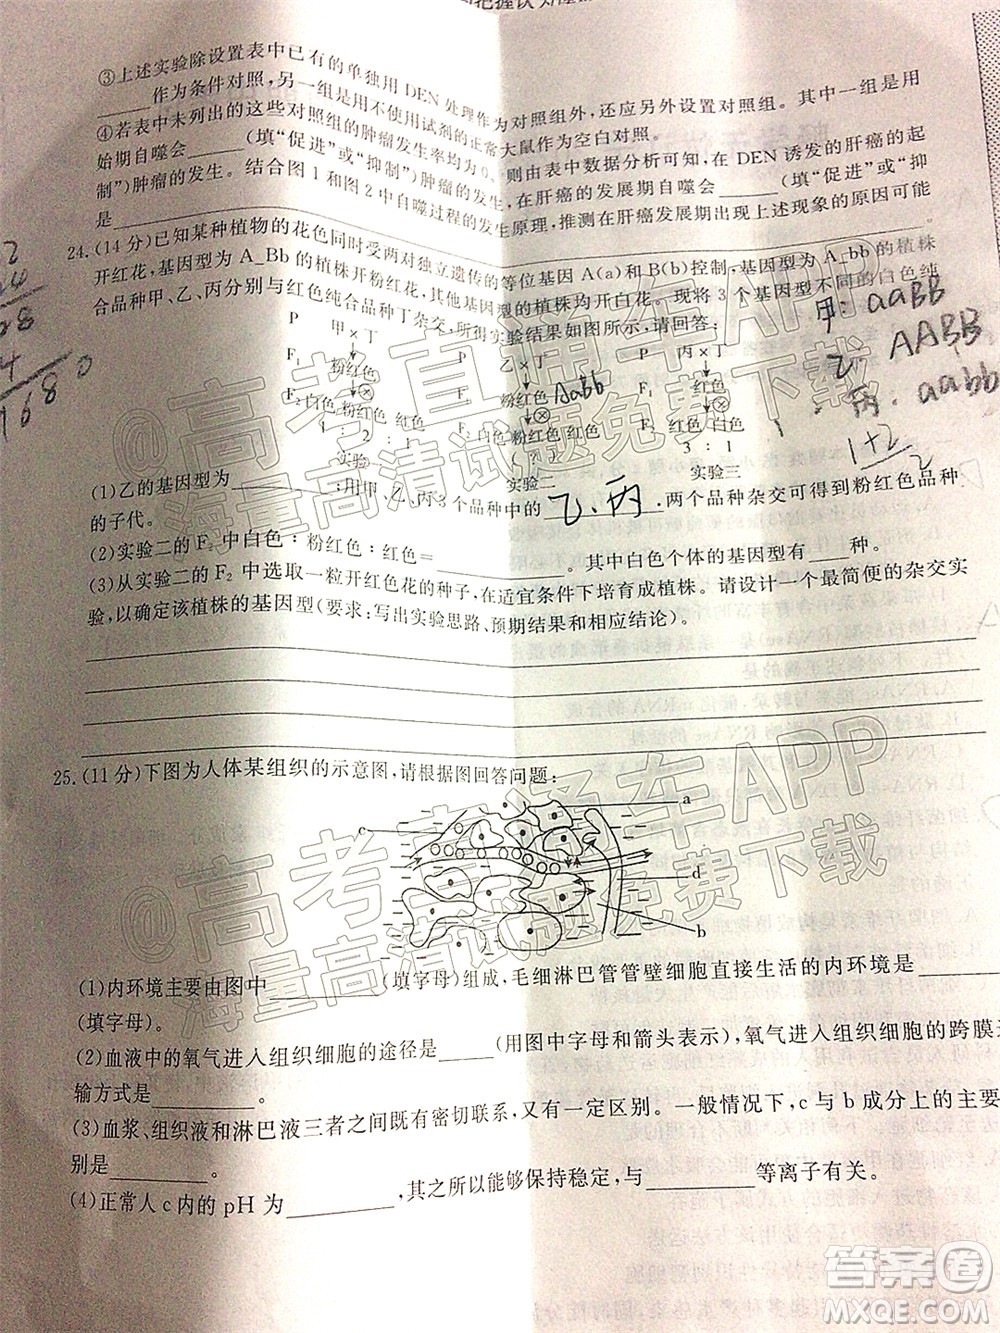 ③上述实验除设置表中已有的单独用 DEN 处理作为对照组外,还应另外设置对照组。其中一组是用
作为条件对照,另一组是用不使用试剂的正常大鼠作为空白对照。
④若表中未列出的这些对照组的肿瘤发生率均为 0,则由表中数据分析可知,在 DEN 诱发的肝癌的
始期自噬会(填“促进”或“抑制”)肿瘤的发生,在肝癌的发展期自噬会(填“促进”或“抑
制”)肿瘤的发生。结合图 1 和图 2 中自噬过程的发生原理,推测在肝癌发展期出现上述现象的原因可能
是
24.(14 分)已知某种植物的花色同时受两对独立遗传的等位基因 A(a)和 B(b)控制,基因型为 A_bb 的植株
开红花,基因型为 A_Bb 的植株开粉红花,其他基因型的植株均开白花。现将 3 个基因型不同的白色纯
合品种甲、乙、丙分别与红色纯合品种丁杂交,所得实验结果如图所示,请回答:
甲:aaBB
P 甲×丁 P 乙×丁 P 丙×丁
乙 AABB
F₁ 粉红色 F₁ 粉红色 AaBb F₁ 红色
丙.aabb
F₂白色 粉红色 红色 F₂白色 粉红色 红色 F₂ 红色 白色
1 : 2 : 1 ( ? ) 3 : 1
实验一 实验二 实验三
(1)乙的基因型为;用甲、乙、丙3个品种中的乙、丙两个品种杂交可得到粉红色品种
的子代。
(2)实验二的 F₂ 中白色∶粉红色∶红色=。其中白色个体的基因型有种。
(3)从实验二的 F₂ 中选取一粒开红色花的种子,在适宜条件下培育成植株。请设计一个最简便的杂交实
验,以确定该植株的基因型(要求:写出实验思路、预期结果和相应结论)。
25.(11 分)下图为人体某组织的示意图,请根据图回答问题:
a
c
d
b
(1)内环境主要由图中(填字母)组成,毛细淋巴管管壁细胞直接生活的内环境是
(填字母)。
(2)血液中的氧气进入组织细胞的途径是(用图中字母和箭头表示),氧气进入组织细胞的跨膜运
输方式是。
(3)血浆、组织液和淋巴液三者之间既有密切联系,又有一定区别。一般情况下,c与b成分上的主要
别是。
(4)正常人c内的pH为,其之所以能够保持稳定,与等离子有关。
@高考直通车APP
海量高清试题免费下载
@高考直通车APP
海量高清试题免费下载
答案圈
MXQE.COM